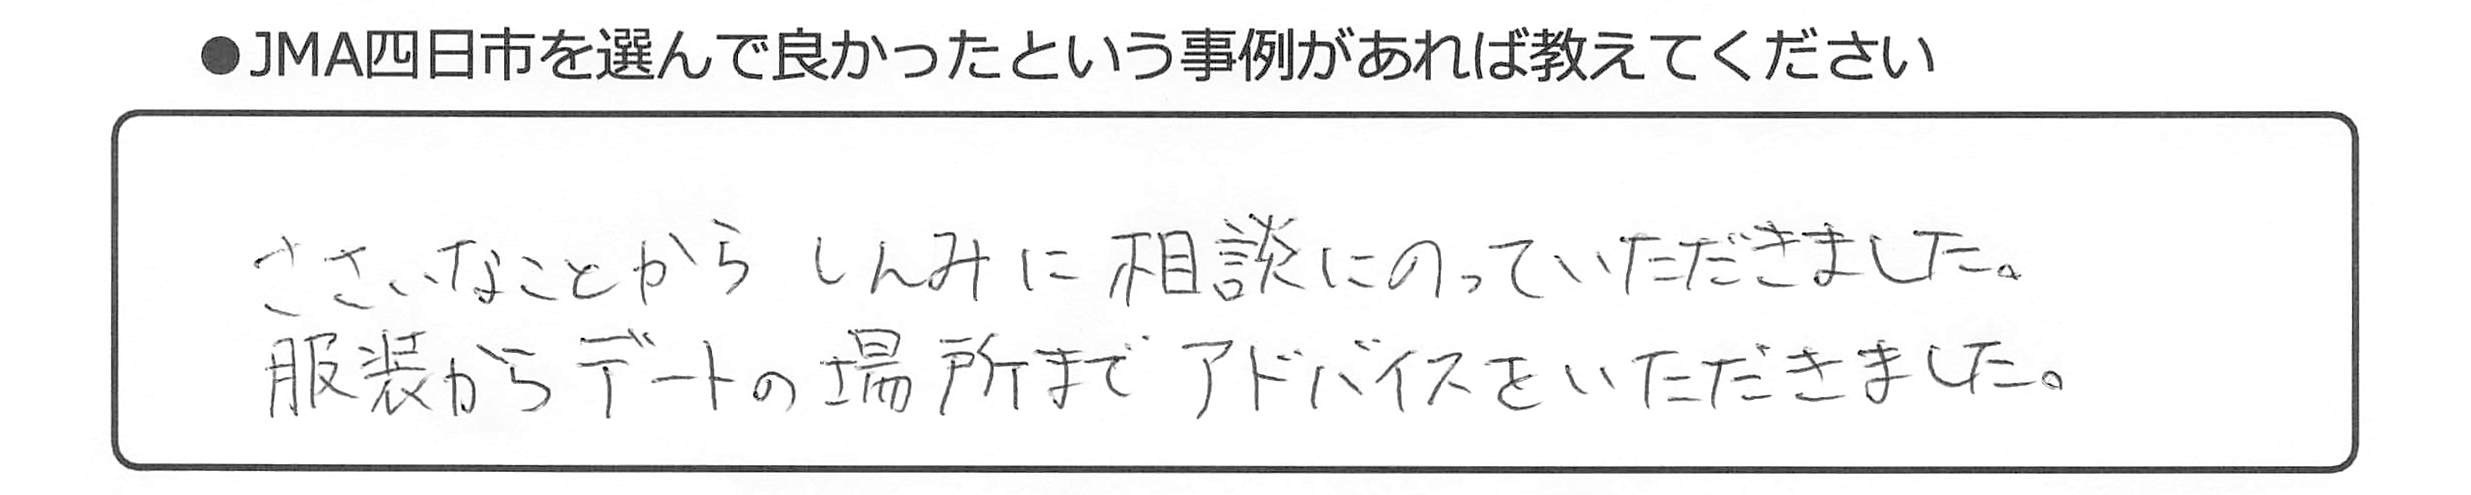 ●JMA四日市を選んで良かったという事例があれば教えてください
ささいなことから しんみに 相談にのっていただきました。
服装からデートの場所まで アドバイスをいただきました。